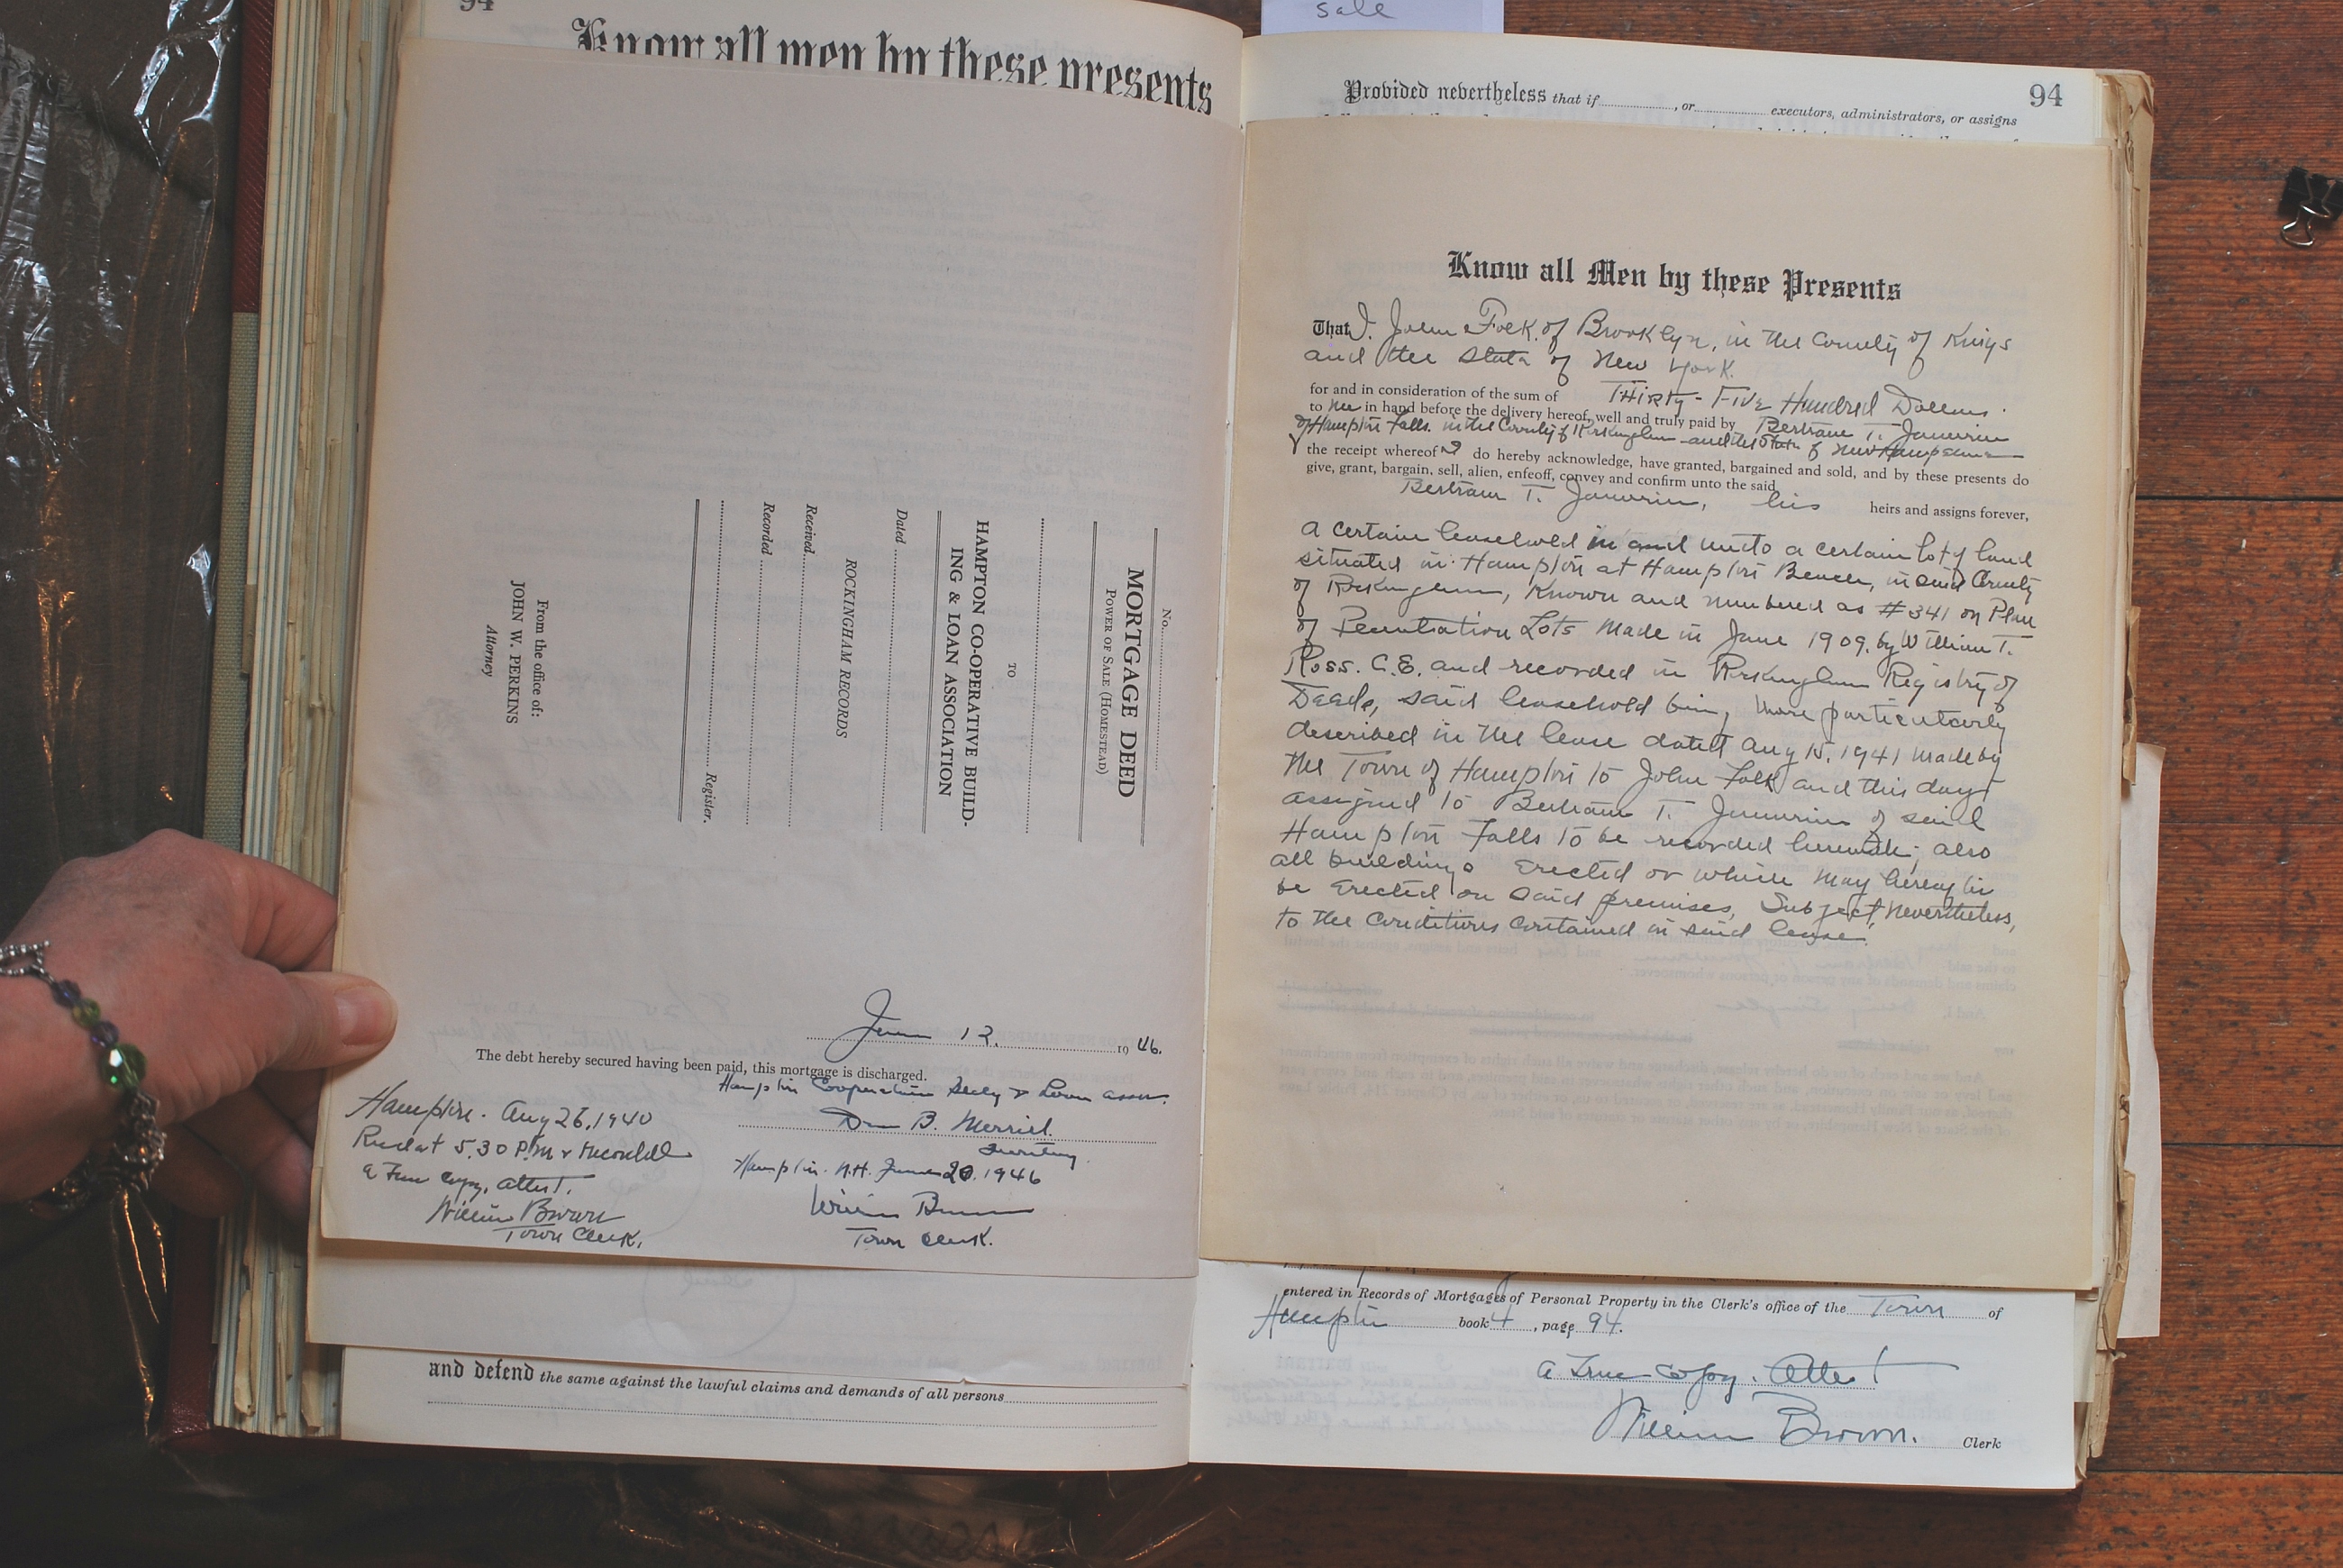 sale
94
Know all men by these presents
No.
MORTGAGE DEED
POWER OF SALE (HOMESTEAD)
TO
HAMPTON CO-OPERATIVE BUILD-
ING & LOAN ASSOCIATION
Dated
ROCKINGHAM RECORDS
Received
Recorded
Register.
From the office of:
JOHN W. PERKINS
Attorney
June 12. 1946.
The debt hereby secured having been paid, this mortgage is discharged.
Hampton Cooperative Bldg & Loan Assn.
B. Merrill
Secretary
Hampton. N.H. June 20. 1946
William Brown
Town Clerk.
Hampton. Aug 26, 1940
Recd at 5.30 P.M & recorded
a True copy, attest.
William Brown
Town Clerk.
and defend the same against the lawful claims and demands of all persons
94
Provided nevertheless that if , or executors, administrators, or assigns
Know all Men by these Presents
That I. John Folk. of Brooklyn, in the County of Kings
and the State of New York.
for and in consideration of the sum of Thirty-Five Hundred Dollars.
to me in hand before the delivery hereof, well and truly paid by Bertram T. Janvrin
of Hampton Falls. in the County of Rockingham and the State of New Hampshire
the receipt whereof I do hereby acknowledge, have granted, bargained and sold, and by these presents do
give, grant, bargain, sell, alien, enfeoff, convey and confirm unto the said
Bertram T. Janvrin, his heirs and assigns forever,
a certain leasehold in and unto a certain lot of land
situated in Hampton at Hampton Beach, in said County
of Rockingham, Known and numbered as #341 on Plan
of Lots Made in June 1909. by William T.
Ross. C.E. and recorded in Rockingham Registry of
Deeds, said leasehold being more particularly
described in the lease dated Aug 15, 1941 made by
the Town of Hampton to John Folk and this day
assigned to Bertram T. Janvrin of said
Hampton Falls to be recorded herewith; also
all buildings erected or which may hereafter
be erected on said premises, Subject, Nevertheless,
to the Conditions contained in said lease.
entered in Records of Mortgages of Personal Property in the Clerk's office of the Town of
Hampton book 4, page 94.
a True Copy. Attest
William Brown. Clerk